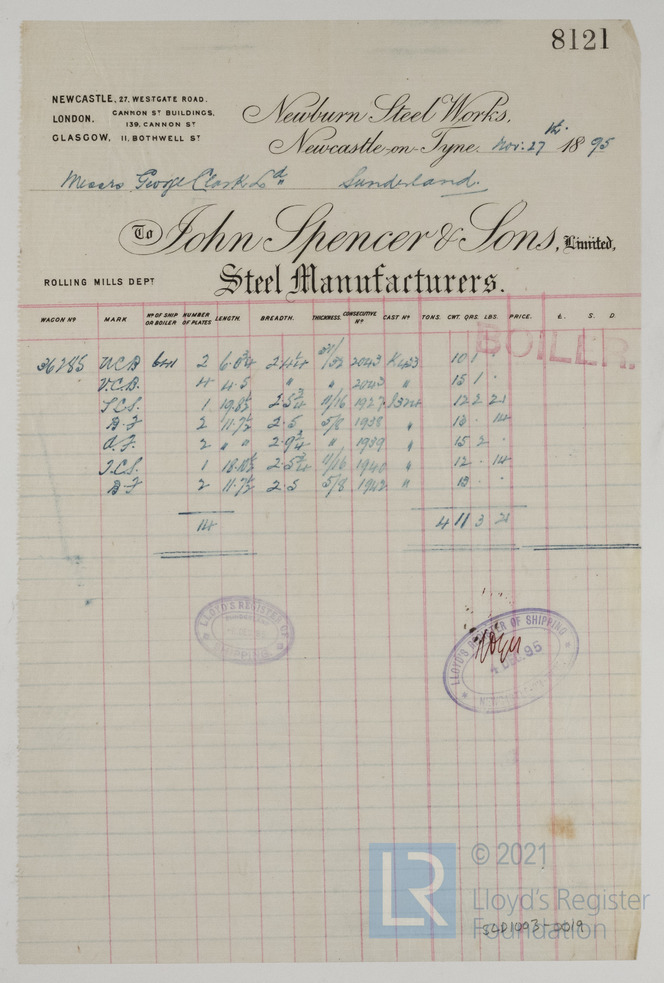 8121
NEWCASTLE, 27, WESTGATE ROAD.
LONDON, CANNON ST BUILDINGS, 139, CANNON ST
GLASGOW, 11, BOTHWELL ST
Newburn Steel Works,
Newcastle-on-Tyne Nov. 27th 1895
Messrs George Clark Ld Sunderland.
To John Spencer & Sons, Limited,
Steel Manufacturers.
ROLLING MILLS DEPT
WAGON No MARK No OF SHIP OR BOILER NUMBER OF PLATES LENGTH. BREADTH. THICKNESS. CONSECUTIVE No CAST No TONS. CWT. QRS. LBS. PRICE. £. S. D.
BOILER.
36285 U.C.B 641 2 2043 10 1 -
4 4.5 " " 15 1 -
1 11/16 1927 12 2 21
B.F 2 11.7½ 2.5 5/8 1938 " 13 - 14
2 " " 2.9¾ " 1939 " 15 2 -
1 2.5¾ 11/16 1940 " 12 - 14
B.F 2 11.7½ 2.5 5/8 1942 " 13 - -
14 4 11 3 21
LLOYD'S REGISTER OF SHIPPING
LLOYD'S REGISTER OF SHIPPING
4 DEC. 95
LR © 2021
Lloyd's Register
Foundation
SLD1093-0019